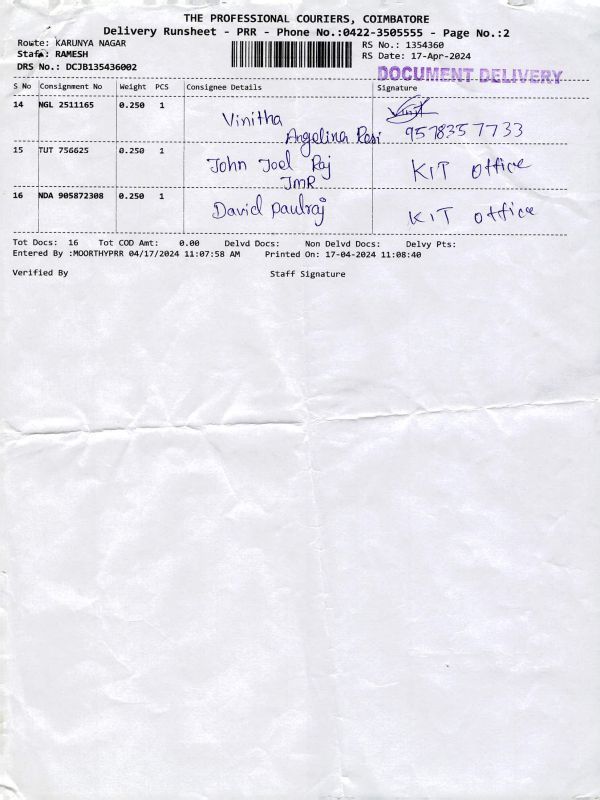 THE PROFESSIONAL COURIERS, COIMBATORE
Delivery Runsheet - PRR - Phone No.:0422-3505555 - Page No.:2
Route: KARUNYA NAGAR
RS No.: 1354360
Staff: RAMESH
RS Date: 17-Apr-2024
DRS No.: DCJB135436002
DOCUMENT DELIVERY
S No Consignment No Weight PCS Consignee Details Signature
14 NGL 2511165 0.250 1 Vinitha
Angelina Rosi 9578357733
15 TUT 756625 0.250 1 John Joel Raj KIT office
JMR
16 NDA 905872308 0.250 1 David paulraj KIT office
Tot Docs: 16 Tot COD Amt: 0.00 Delvd Docs: Non Delvd Docs: Delvy Pts:
Entered By :MOORTHYPRR 04/17/2024 11:07:58 AM Printed On: 17-04-2024 11:08:40
Verified By Staff Signature